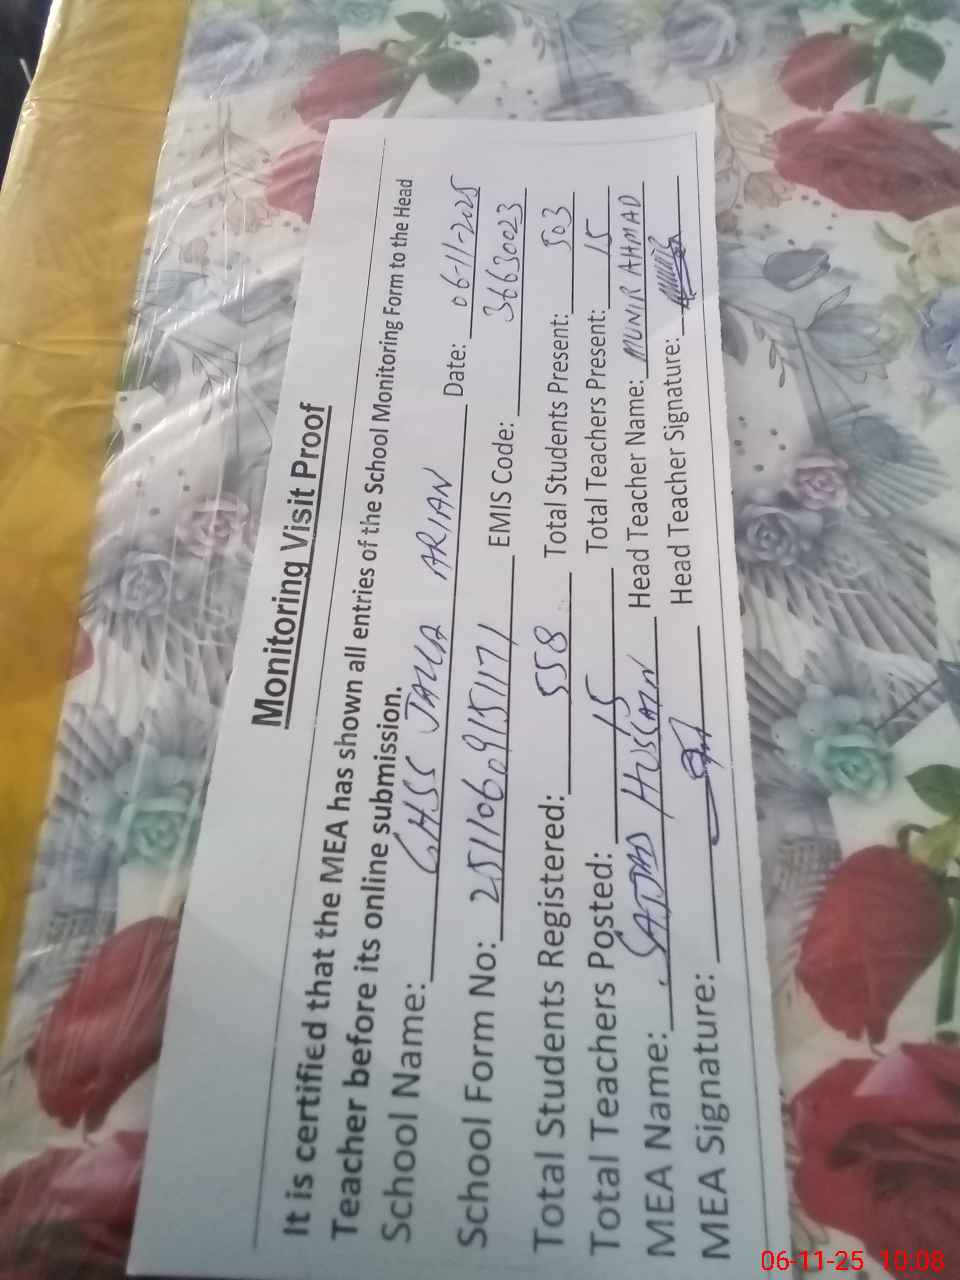 Monitoring Visit Proof
It is certified that the MEA has shown all entries of the School Monitoring Form to the Head
Teacher before its online submission.
School Name: GHSS JALLA ARIAN Date: 06-11-2025
School Form No: 25110609151171 EMIS Code: 36630023
Total Students Registered: 558 Total Students Present: 503
Total Teachers Posted: 15 Total Teachers Present: 15
MEA Name: SAJJAD HUSSAIN Head Teacher Name: MUNIR AHMAD
MEA Signature: Head Teacher Signature:
06-11-25 10:08